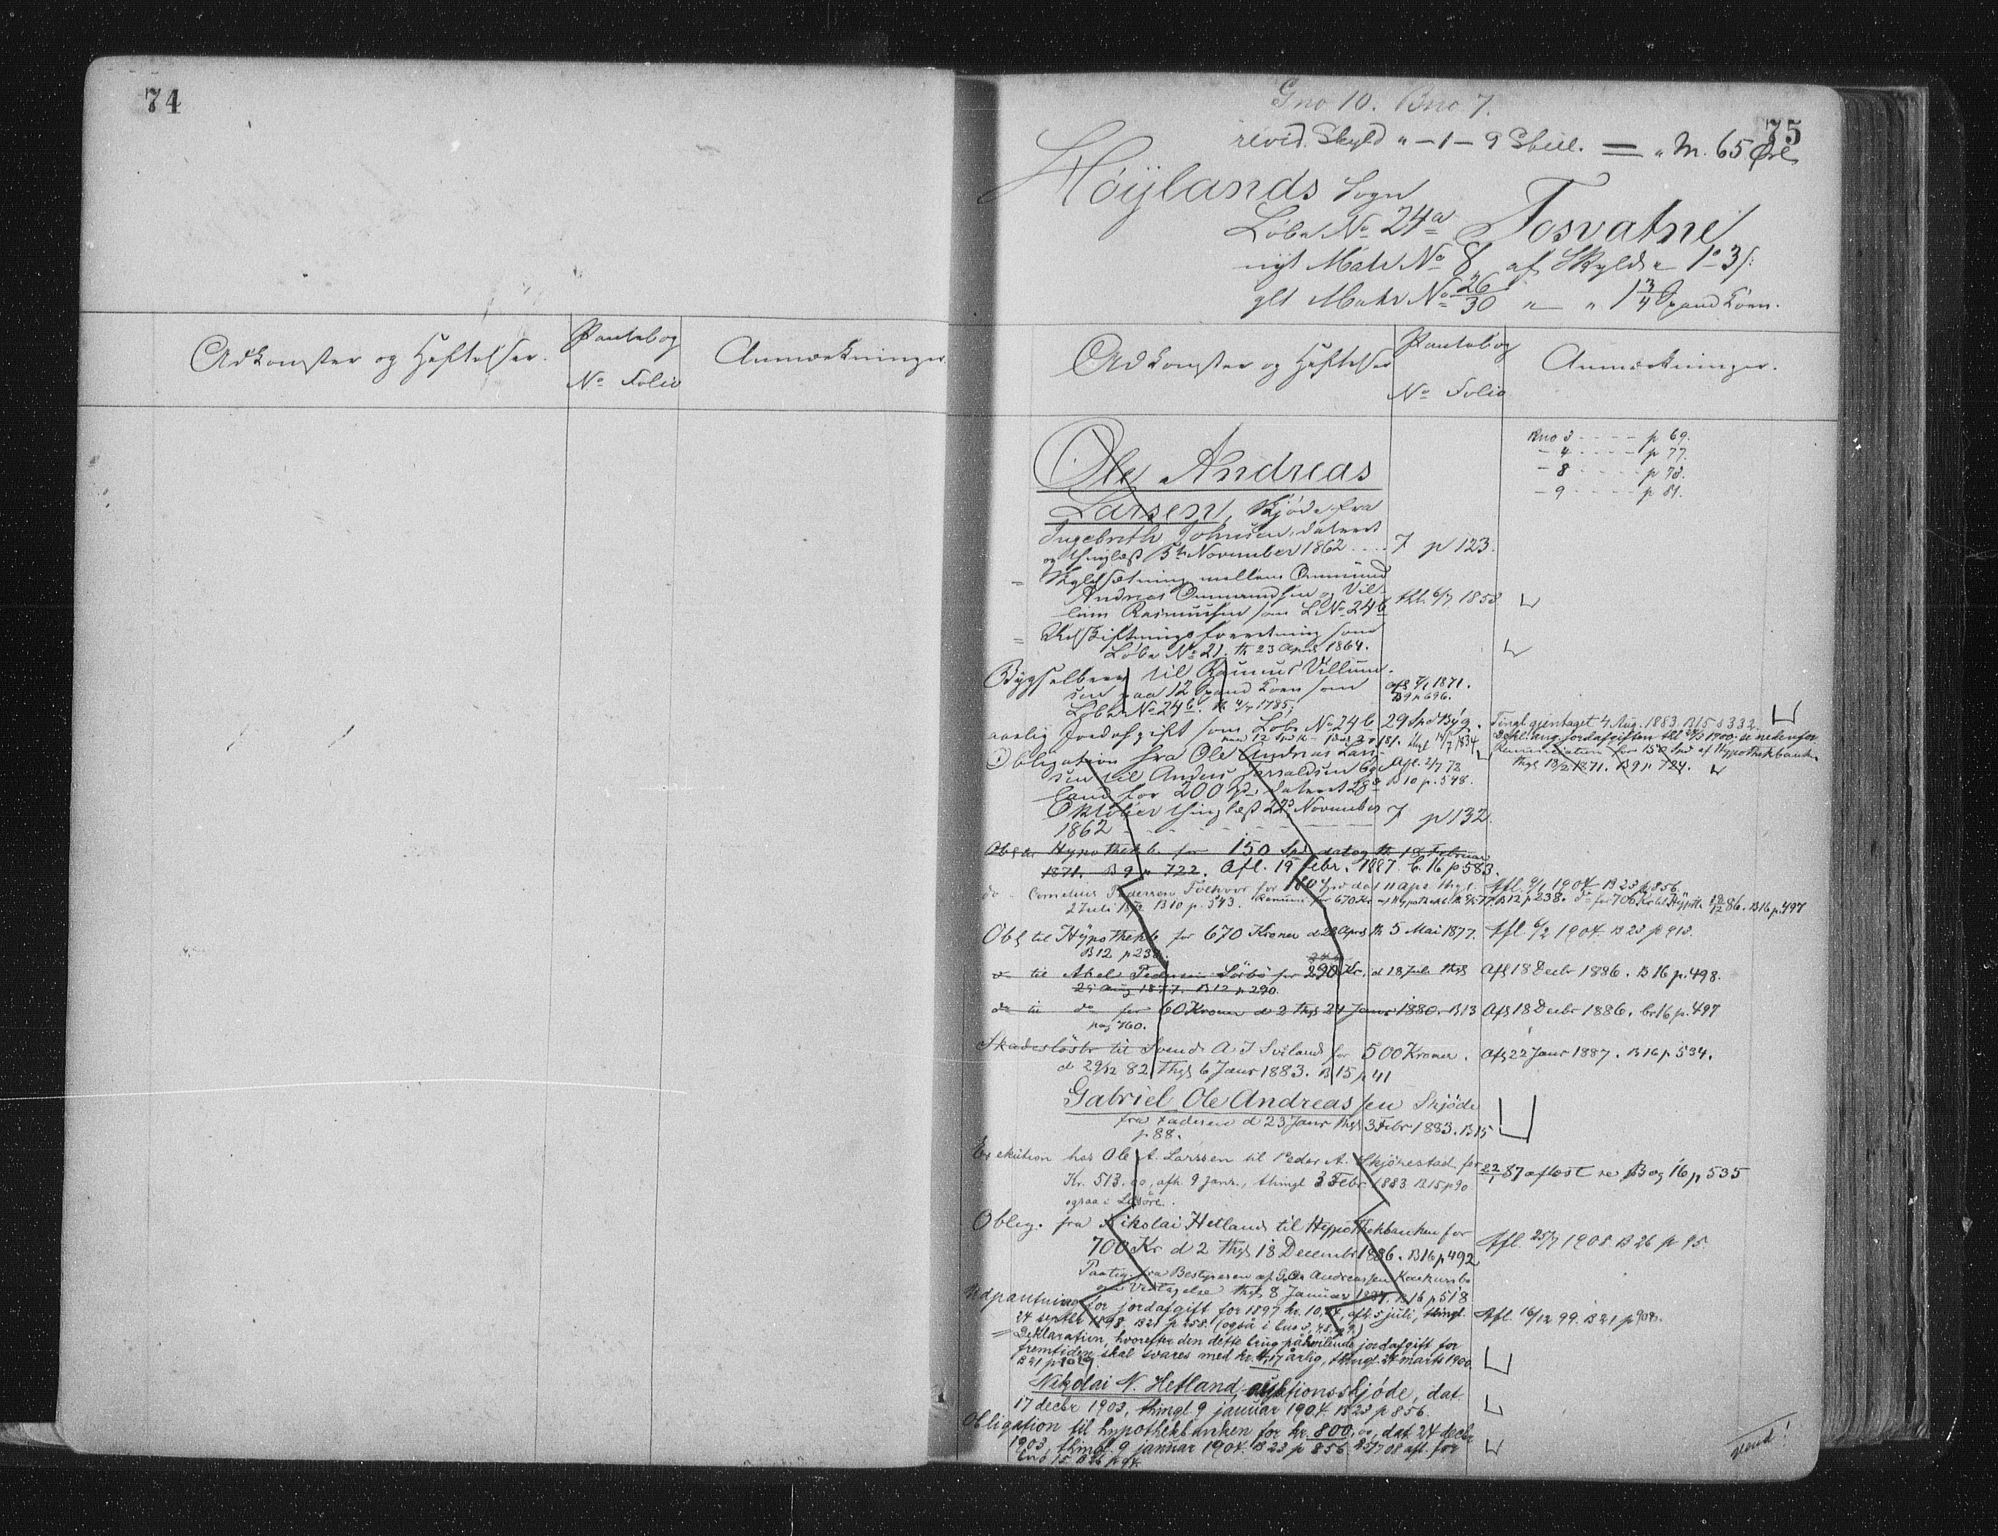 74
Adkomster og Heftelser.
Pantebog
No Folio
Anmærkninger.
75
Gno 10. Bno 7.
revid. Skyld " - 1 - 9 Skill. = " M. 65 Øre
Höÿlands Sogn
Löbe No 24a Fosvatne
nÿt Matr No 8 af Skyld " 1 " 3
glt Matr No 26/30 " " 1 3/4 Spand Korn.
Adkomster og Heftelser
Pantebog
No Folio
Anmærkninger.
Bno 3 - - - - p 69.
- 4 - - - - p 77.
- 8 - - - - p 78.
- 9 - - - - p 81.
Ole Andreas
Larsen, Skjöde fra
Ingebreth Johnsen, dateret
og thinglæst 5te November 1862 .... 7 p 123.
= Skyldsætning mellem Ommund
Andreas Ommundsen og Vil-
lum Rasmussen som L No 24b thl. 6/7 1853
= Udskiftningsforretning som
Löbe No 21. th 23 April 1864.
Bÿgselbrev til Rasmus Villum-
sen paa 12 Spand Korn som
Löbe No 24b.
afl 1871.
B 9 p 696.
aarlig Jordafgift som Löbe No 24b 29 Spd Bÿg.
Tingl. gjentaget 4 Aug. 1883. B 15 p 332
Dekl. ang. jordafgiften thl 24/3 1900 se nedenfor
Obligation fra Ole Andreas Lars-
sen til Anders Torvaldsen
land for 200 Spd, dateret 28de
Oktober thinglæst 22de November 7 p 132.
1862
Afl. 2/7 72
B 10 p. 548.
for 150 Spd af Hypothekbank
thgl 13/2 1871. B 9 p 724.
Obl til Hypothekb. for 150 Spd datog th 18 Februar
1871. B 9 p 722. Afl. 19 Febr. 1887 b. 16 p 583.
do - Cornelius Pedersen Folkvor for 180 Spd dat 11 Apr. thgl.
2 Juli 1872 B 10 p. 543.
Afl. 9/1 1904 B 23 p. 856
Obl til Hÿpothekb for 670 Kroner d 28 April th 5 Mai 1877.
B 12 p 238.
Afl 6/2 1904. B 23 p 913.
do til Abel Pedersen Sörbö for 290 Kr. d 18 Juli thgl
25 Aug 1877. B 12 p 290.
Afl 18 Decbr 1886. B 16 p. 498.
do til do for 60 Kroner d 2 thgl 24 Janr 1880. B 13
pag 460.
Afl 18 Decbr 1886. b. 16 p. 497
Skadeslösbr til Svend A. J. Sviland for 500 Kroner.
d 29/12 82. thgl 6 Janr 1883. B 15 p 41
Afl 22 Janr 1887. B 16 p 534.
Gabriel Ole Andreassen Skjöde
fra Faderen d 23 Janr thgl 3 Febr 1883. B 15
p 88.
Exekution hos Ole A. Larssen til Peder A. Skjörestad for
Kr. 513.00, afh. 9 janr., thingl 3 Febr 1883. B 15 p 90
ogsaa i Lösöre.
22/1 87 aflöst se Bog 16 p 535
Oblig. fra Nikolai Hetland til Hypothekbanken for
700 Kr d 2 thgl 18 December 1886. B 16 p 492
Afl. 25/7 1908 B 26 p 95.
Paateg. fra Bestyreren af G. Ole Andreassen Konkursbo
om Vedtagelse thgl 8 Januar 1887. B 16 p 518
Udpantning for jordafgift for 1897 kr. 10,44, afh. 5 juli, thingl.
24 septbr 1898, B 21 p 258. (også i bno 3, 4, 8, 9.)
Afl. 16/12 99. B 21 p 908.
= Deklaration, hvorefter den dette brug påhvilende jordafgift for
fremtiden skal svares med kr. 4,17 årlig, thingl. 24 marts 1900.
B 21 p 1019.
Nikolai N. Hetland, auktionsskjöde, dat.
17 decbr 1903, thingl. 9 januar 1904. B 23 p 856.
Obligation til hypothekbanken for kr. 800,00, dat. 24 decbr
1903, thingl. 9 januar 1904. B 23 p 856, 25/7 08 afl. for
bno 15 B 26 p 94.
vend!